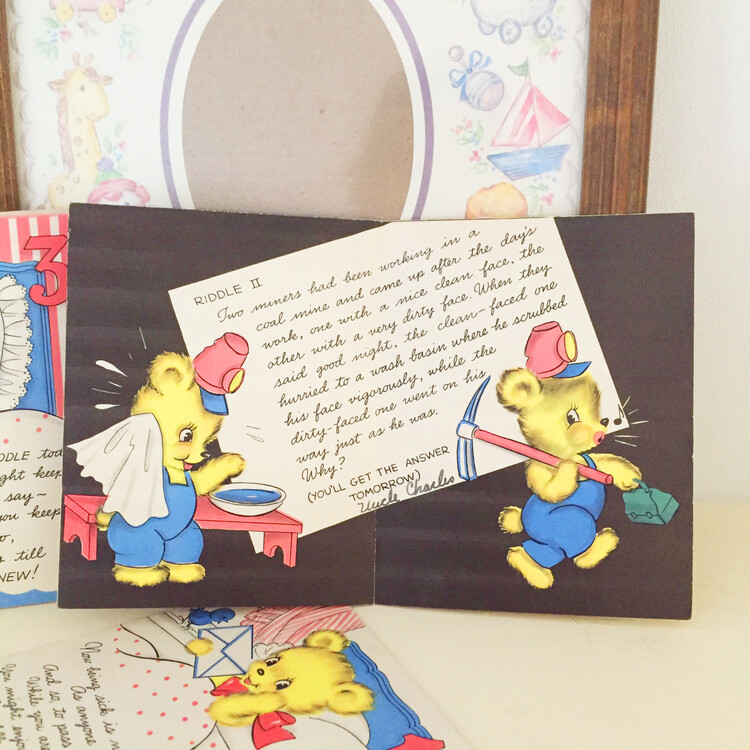 RIDDLE II
Two miners had been working in a
coal mine and came up after the day's
work, one with a nice clean face, the
other with a very dirty face. When they
said good night, the clean-faced one
hurried to a wash basin where he scrubbed
his face vigorously, while the
dirty-faced one went on his
way just as he was.
Why?
(YOU'LL GET THE ANSWER
TOMORROW)
Uncle Charles
3
RIDDLE
say~
you keep
till
NEW!
Now being sick is
As anyone
And so, to pass
While you are
You might enjoy